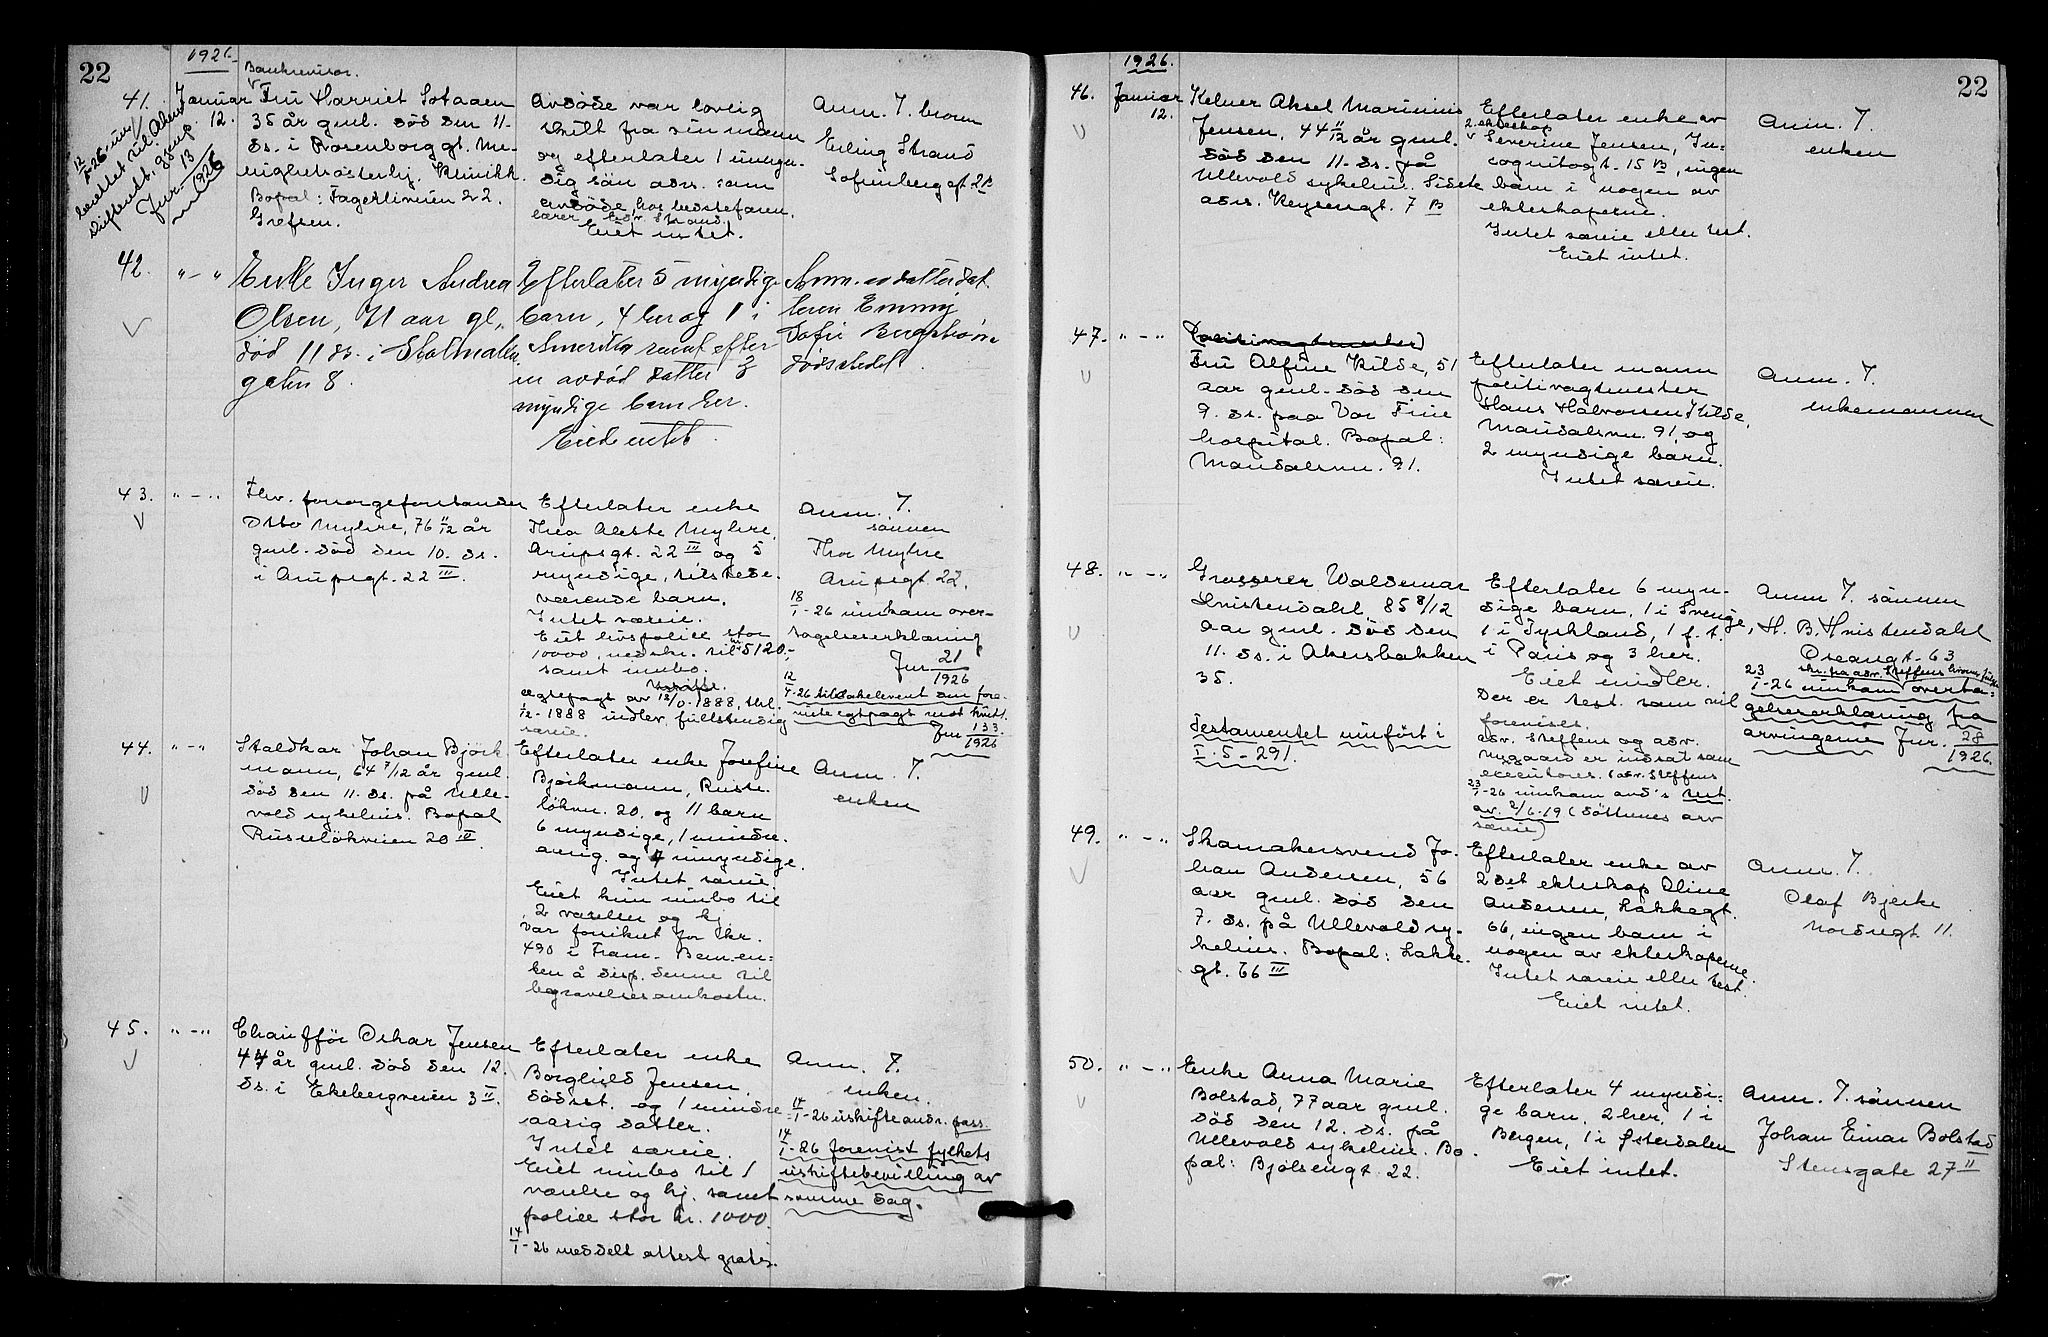 22
1926.
Bankrevisor.
41. Januar 12.
Fru Harriet
35 år gml. död den 11.
ds. i Rosenborggt. Me-
nighetssösterhj. Klinikk.
Bopal: Fagerliveien 22.
Grefsen.
12/I-26
Jnr. 13/1926
Avdöde var lovlig
skilt fra sin mann
og efterlater 1 umyn-
dig sön adr. som
avdöde, hos bedstefaren,
lærer Edv. Strand.
Eiet intet.
Anm. f. broren
Erling Strand
Sofienberggt.
42. " - "
Enke Inger Andrea
Olsen, 71 aar gl.,
död 11 ds. i Stolmaker
gaten 8.
Efterlater 5 myndige
barn, 4 her og 1 i
Amerika samt efter
en avdöd datter 3
myndige barn her.
Eied intet.
Anm. av datterdat
teren Emmy
Sofie Bergström
dödsstedet.
43. " - "
Fhv. forsorgsforstander
Otto Myhre, 76 11/12 år
gml. död den 10. ds.
i Arupsgt. 22 III.
Efterlater enke
Thea Myhre,
Arupsgt. 22 III og 5
myndige, tilstede-
værende barn.
Intet særeie.
Eiet livspolice stor
10000, nedskr. til 5120,-
samt innbo.
ægtepagt av 1888, thl.
1888 indlev. fullstendig
særeie.
Anm. f.
sönnen
Thor Myhre
Arupsgt. 22.
18/I-26 innkom over-
tagelseserklæring
Jnr 21/1926
12/I-26
Jnr 133/1926
44. " - "
Staldkar Johan Björk
mann, 64 7/12 år gml.
död den 11. ds. på Ulle-
vold sykehus. Bopal
Ruselökveien 20 III.
Efterlater enke Josefine
Björkmann, Ruse-
lökvn. 20, og 11 barn
6 myndige, 1 mindre-
aarig og 4 umyndige.
Intet særeie.
Eiet kun innbo til
2 værelser og kj.
Var forsikret for kr.
490 i Fram. Bem. en-
ken å disp. denne til
begravelsesomkostn.
Anm. f.
enken
45. " - "
Chaufför Oskar Jensen
44 år gml. död den 12.
ds. i Ekebergveien 3 II.
Efterlater enke
Borghild Jensen
dödsst. og 1 mindre
aarig datter.
Intet særeie.
Eiet innbo til 1
værelse og kj. samt
police stor kr. 1000.
14/I-26 meddelt attest gratis.
Anm. f.
enken.
14/I-26 uskifteandr. pass.
14/I-26 forevist fylkets
uskiftebevilling av
samme dag.
22
1926.
46. Januar 12.
Kelner Aksel Marinius
Jensen, 44 11/12 år gml.
död den 11. ds. på
Ullevold sykehus. Sidste
adr. Keysersgt. 7 B
Efterlater enke av
2. ekteskap
Severine Jensen, In-
cognitogt. 15 B, ingen
barn i nogen av
ekteskaperne.
Intet særeie eller test.
Eiet intet.
Anm. f.
enken
47. " - "
(Politivagtmester)
Fru Alfine Kilde, 51
aar gml. död den
9. ds. paa Vor Frue
hospital. Bopal:
Maridalsvn. 91.
Efterlater mann
politivagtmester
Hans Halvorsen Kilde,
Maridalsvn. 91, og
2 myndige barn.
Intet særeie.
Anm. f.
enkemannen
48. " - "
Grosserer Waldemar
Hvistendahl, 85 8/12
aar gml. död den
11. ds. i Akersbakken
35.
Testamentet innfört i
I - 5 - 291.
Efterlater 6 myn-
dige barn, 1 i Sverige,
1 i Tyskland, 1 f. t.
i Paris og 3 her.
Eiet midler.
Der er test. som vil
forevises.
adv. Steffens og adv.
Nygaard er indsat som
executores. (adv. Steffens
23/I-26 innkom avd's test.
av 2/6-19 (döttrenes arv
særeie)
Anm. f. sönnen
H. B. Hvistendahl
Oscarsgt. 63
23/I-26 innkom overta-
gelseserklæring fra
arvingerne Jnr. 28/1926.
49. " - "
Skomakersvend Jo-
han Andersen, 56
aar gml. död den
7. ds. på Ullevold sy-
kehus. Bopal: Lakke-
gt. 66 III
Efterlater enke av
2det ekteskap Oline
Andersen, Lakkegt.
66, ingen barn i
nogen av ekteskaperne.
Intet særeie eller test.
Eiet intet.
Anm. f.
Olaf Bjerke
Nordregt 11.
50. " - "
Enke Anna Marie
Bolstad, 77 aar gml.
död den 12. ds. på
Ullevold sykehus. Bo-
pal: Bjölsengt. 22.
Efterlater 4 myndi-
ge barn, 2 her, 1 i
Bergen, 1 i Østerdalen
Eiet intet.
Anm. f. sönnen
Johan Einar Bolstad
Stensgate 27 II